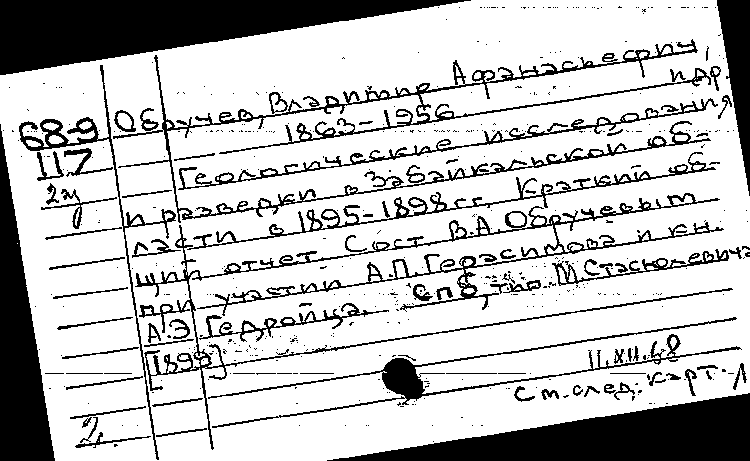 68-9
117
2
Обручев, Владимир Афанасьевич,
1863-1956. и др.
Геологические исследования
и разведки в Забайкальской об-
ласти в 1895-1898 гг. Краткий об-
щий отчет. Сост. В.А.Обручевым
при участии А.П.Герасимова и кн.
А.Э.Гедройца. Спб, тип. М.Стасюлевича
[1899]
11.XII.68
См. след. карт.
2.